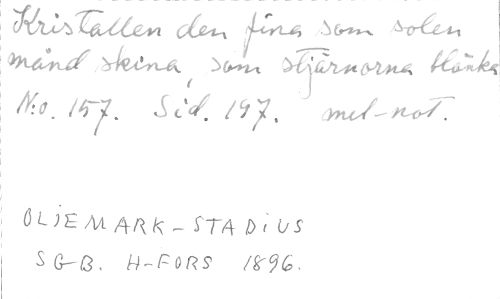 Kristallen den fina som solen
månd skina, som stjärnorna blänka
N:o. 157. Sid. 197. mel-not.
OLJEMARK-STADIUS
SGB. H-FORS 1896.